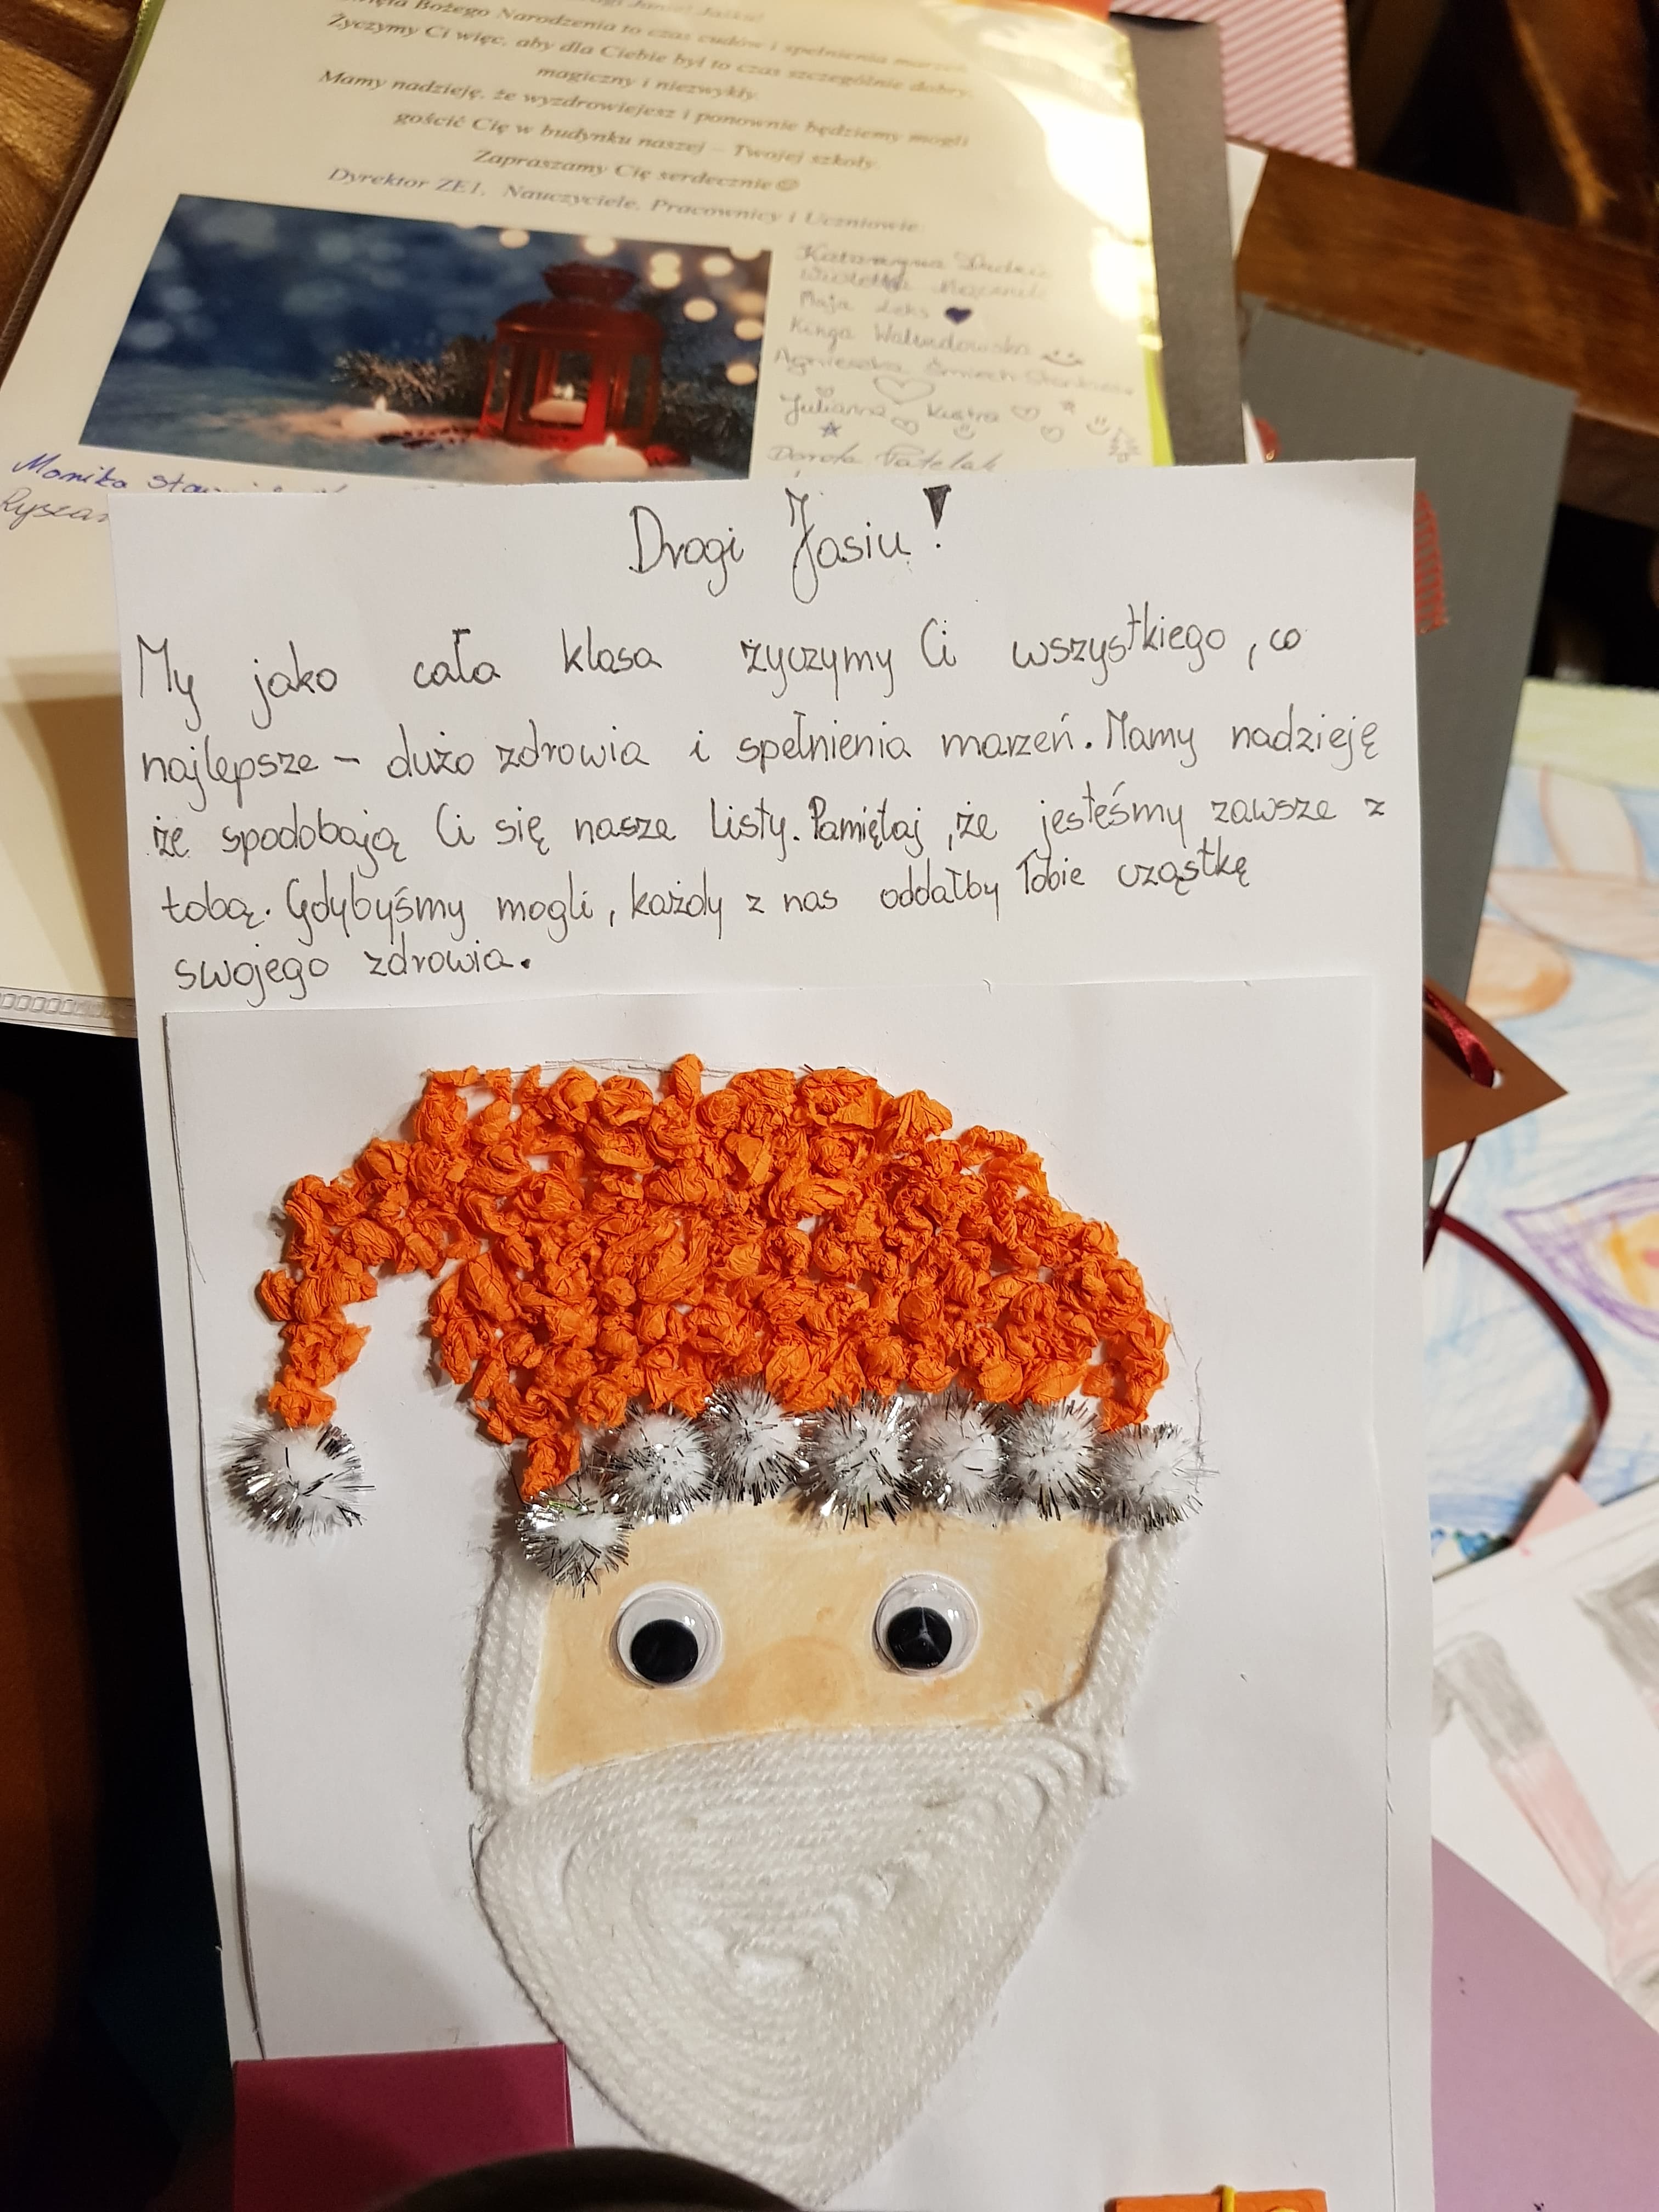 Bożego Narodzenia to czas cudów i spełnienia marzeń.
Życzymy Ci więc, aby dla Ciebie był to czas szczególnie dobry,
magiczny i niezwykły.
Mamy nadzieję, że wyzdrowiejesz i ponownie będziemy mogli
gościć Cię w budynku naszej – Twojej szkoły
Zapraszamy Cię serdecznie☺
Dyrektor ZE1, Nauczyciele, Pracownicy i Uczniowie
Katarzyna
Maja Leks
Kinga
Agnieszka
Julianna Kustra
Dorota
Monika
Drogi Jasiu!
My jako cała klasa życzymy Ci wszystkiego, co
najlepsze – dużo zdrowia i spełnienia marzeń. Mamy nadzieję
że spodobają Ci się nasze listy. Pamiętaj, że jesteśmy zawsze z
tobą. Gdybyśmy mogli, każdy z nas oddałby Tobie cząstkę
swojego zdrowia.